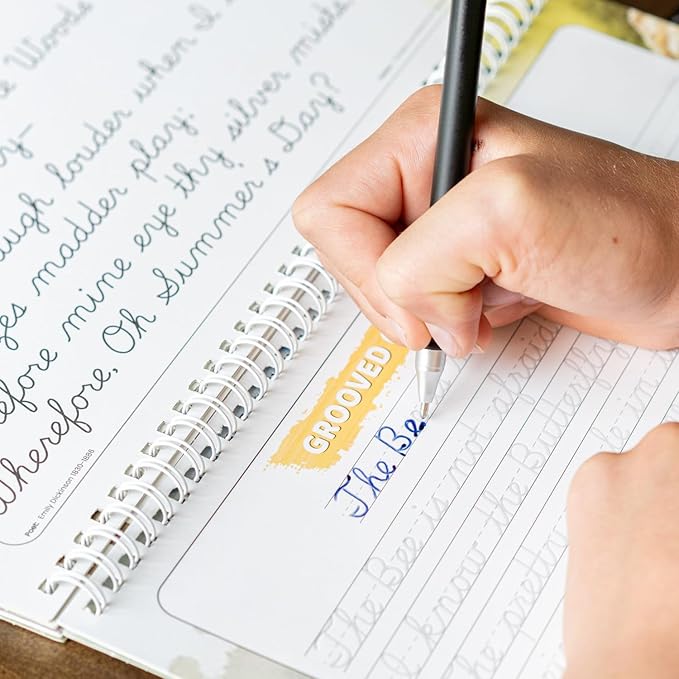 e Woods
augh louder when I s
ges madder play;
efore mine eye thy silver mists
Wherefore, Oh Summer's Day?
Poet: Emily Dickinson 1830-1886
GROOVED
The Be
The Bee is not afraid
I know the Butterfly
The pretty
in